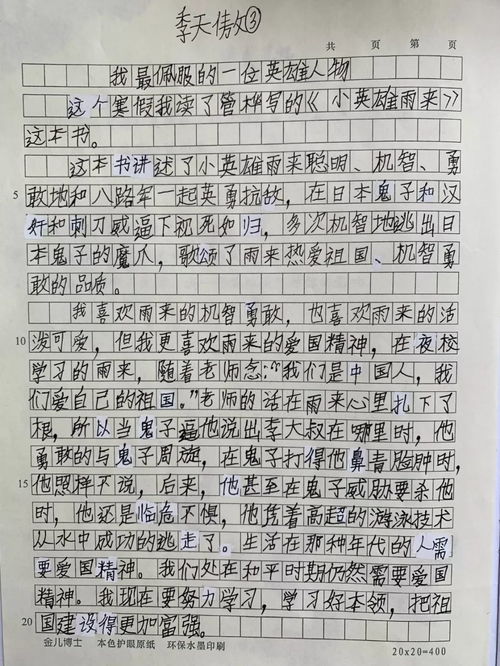 季天傲③
共 页 第 页
我最佩服的一位英雄人物
这个寒假我读了管桦写的《小英雄雨来》
这本书。
这本书讲述了小英雄雨来聪明、机智、勇
5 敢地和八路军一起英勇抗敌,在日本鬼子和汉
奸和刺刀威逼下视死如归,多次机智地逃出日
本鬼子的魔爪,歌颂了雨来热爱祖国、机智勇
敢的品质。
我喜欢雨来的机智勇敢,也喜欢雨来的活
10 泼可爱,但我更喜欢雨来的爱国精神,在夜校
学习的雨来,随着老师念:“我们是中国人,我
们爱自己的祖国。”老师的话在雨来心里扎下了
根,所以当鬼子逼他说出李大叔在哪里时,他
勇敢的与鬼子周旋,在鬼子打得他鼻青脸肿时,
15 他照样不说,后来,他甚至在鬼子威胁要杀他
时,他还是临危不惧,他凭着高超的游泳技术
从水中成功的逃走了。生活在那种年代的人需
要爱国精神。我们处在和平时期仍然需要爱国
精神。我现在要努力学习,学习好本领,把祖
20 国建设得更加富强。
金儿博士 本色护眼原纸 环保水墨印刷 20x20=400